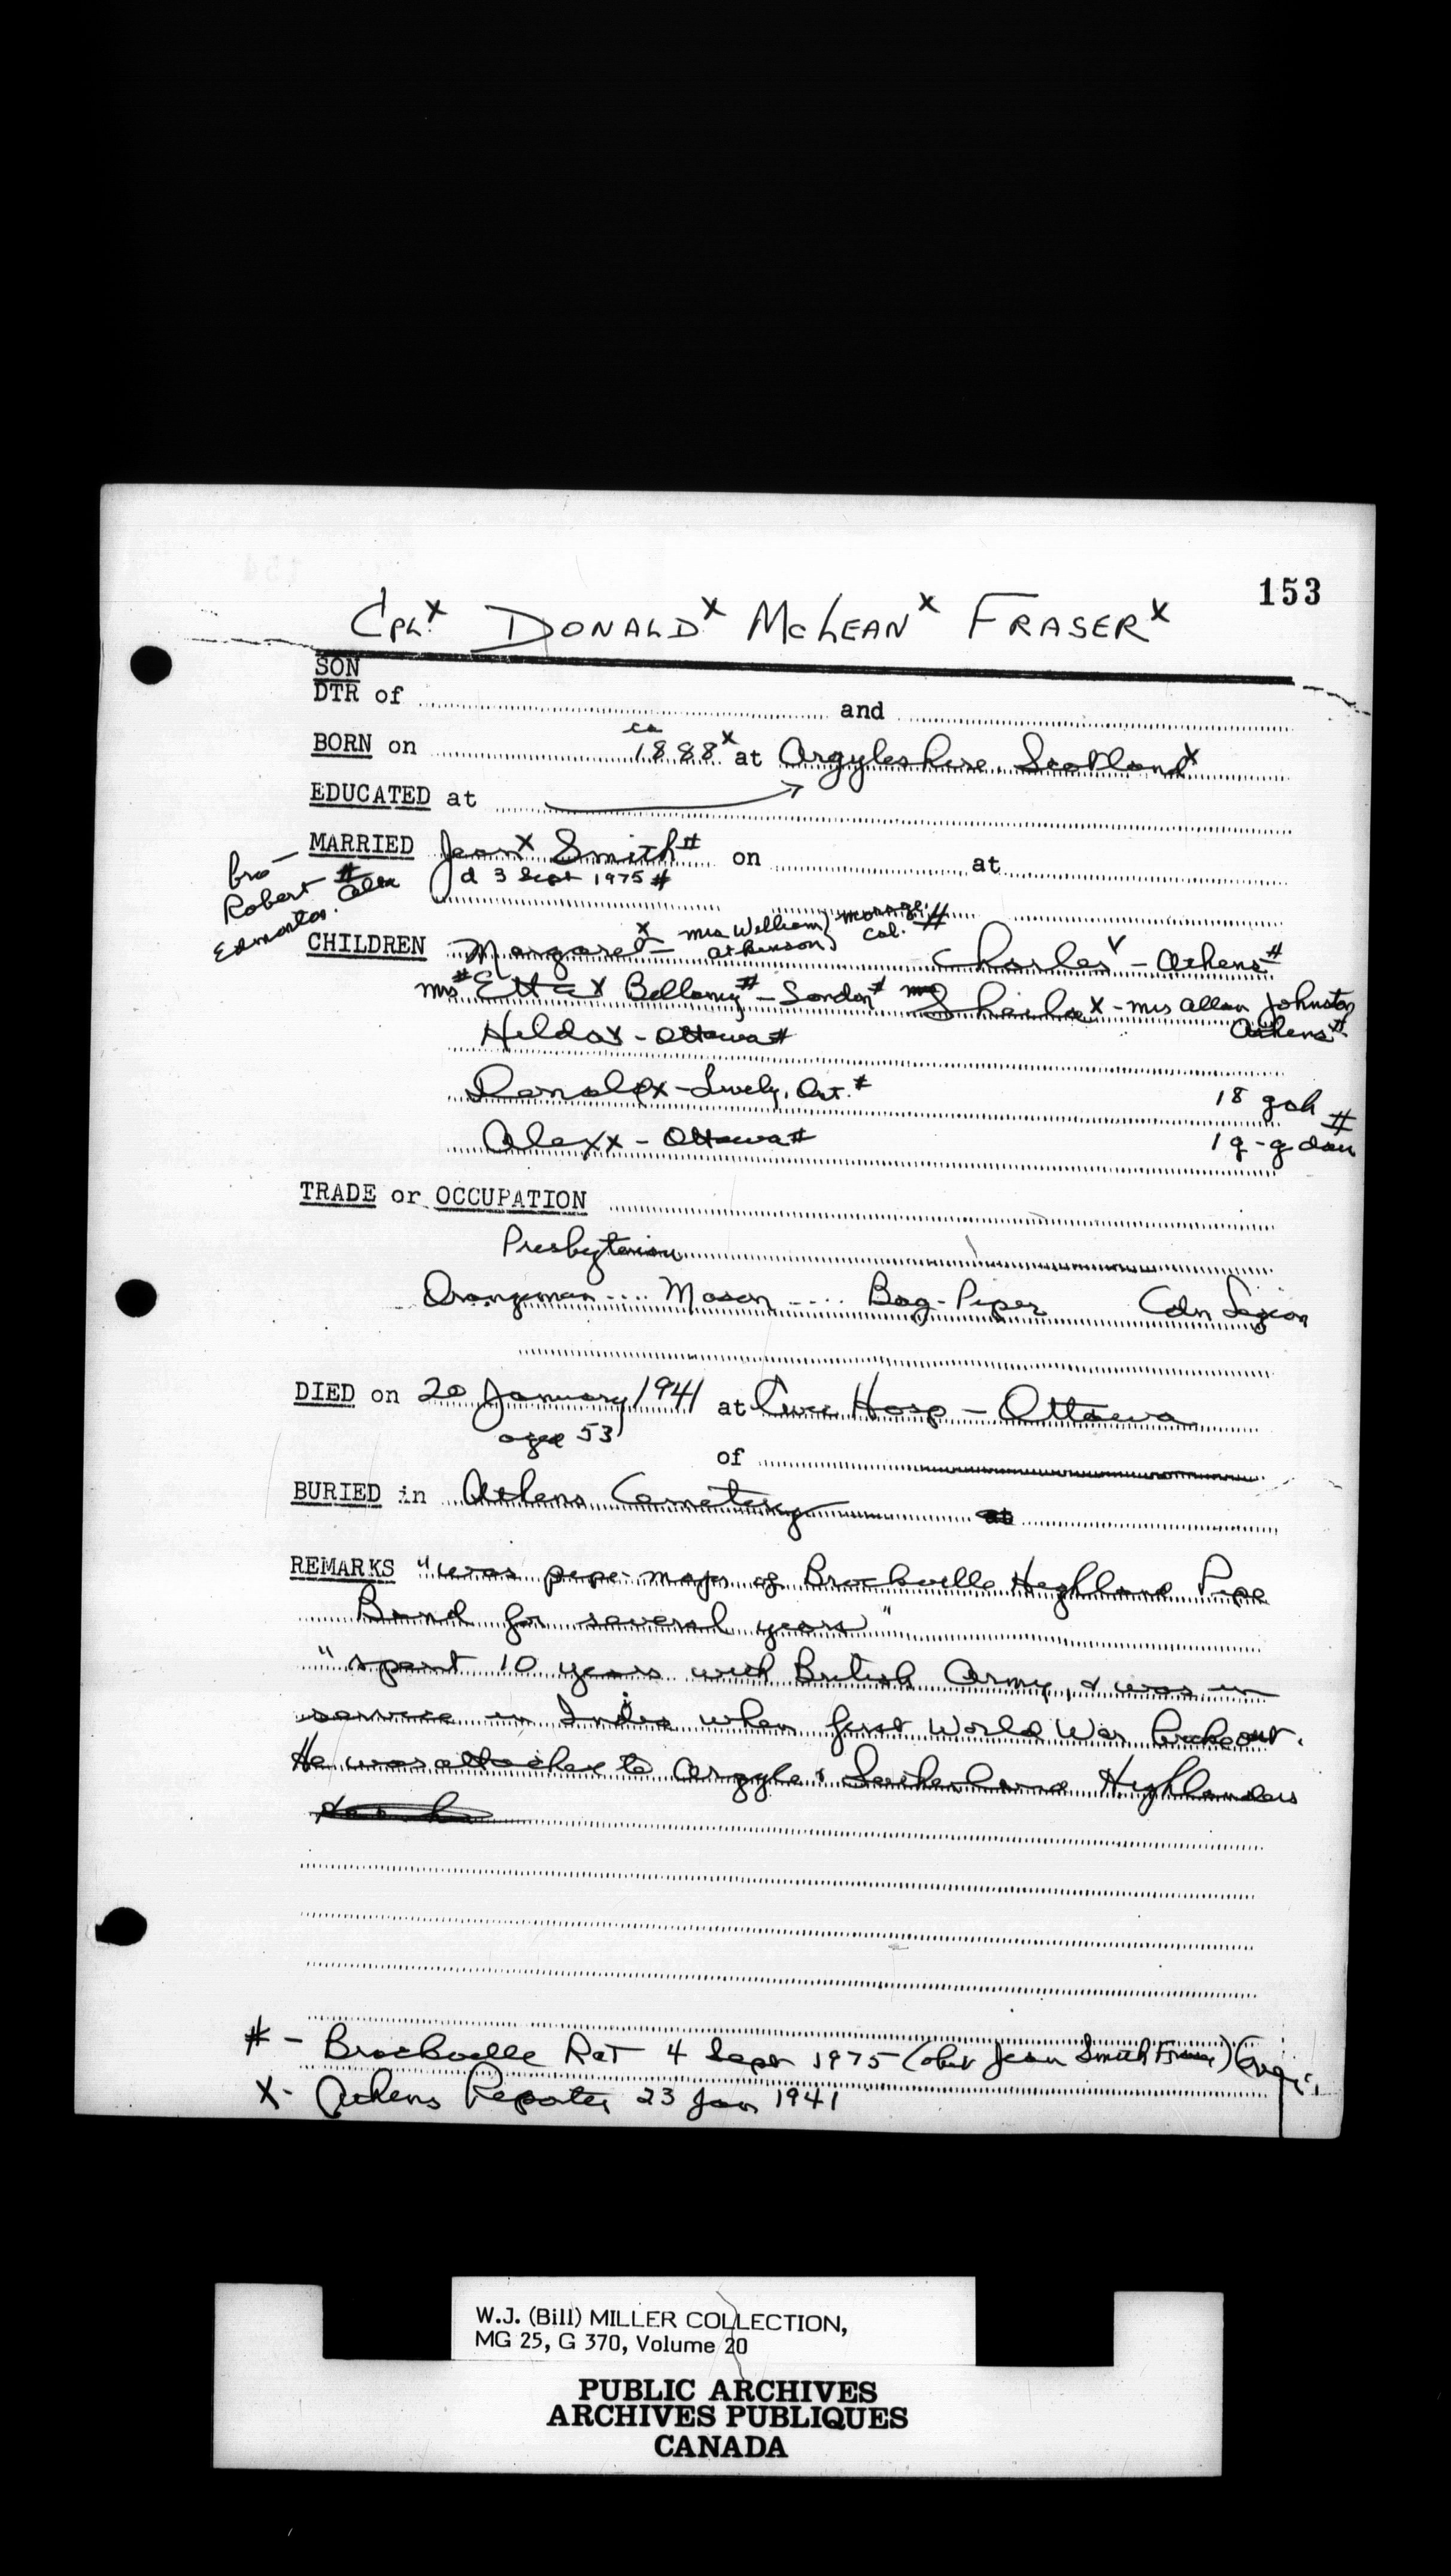 153
Cpl.x DONALDx McLEANx FRASERx
SON
DTR of and
BORN on ca 1888x at Argyleshire, Scotlandx
EDUCATED at
MARRIED Jeanx Smith# on at
d 3 Sept 1975#
bro -
Robert #
Edmonton. Alta
CHILDREN Margaretx - Mrs William Atkinson) Cal. # Charlesx - Athens#
Mrs# Ettax Bellamy# - London# Sheilax - Mrs Allan Johnston
Athens#
Hildax - Ottawa#
Donaldx - Lively, Ont.#
18 gch #
Alexx - Ottawa#
1 g-g dau
TRADE or OCCUPATION
Presbyterian
Orangeman .... Mason .... Bag-Piper Cdn Legion
DIED on 20 January 1941 at Civic Hosp - Ottawa
aged 53
of
BURIED in Athens Cemetery at
REMARKS "was pipe-major of Brockville Highland Pipe
Band for several years"
"spent 10 years with British Army, & was in
service in India when first World War broke out.
He was attached to Argyle & Sutherland Highlanders
# - Brockville RaT 4 Sept 1975 (obit Jean Smith Fraser)
X - Athens Reporter 23 Jan 1941
W.J. (Bill) MILLER COLLECTION,
MG 25, G 370, Volume 20
PUBLIC ARCHIVES
ARCHIVES PUBLIQUES
CANADA